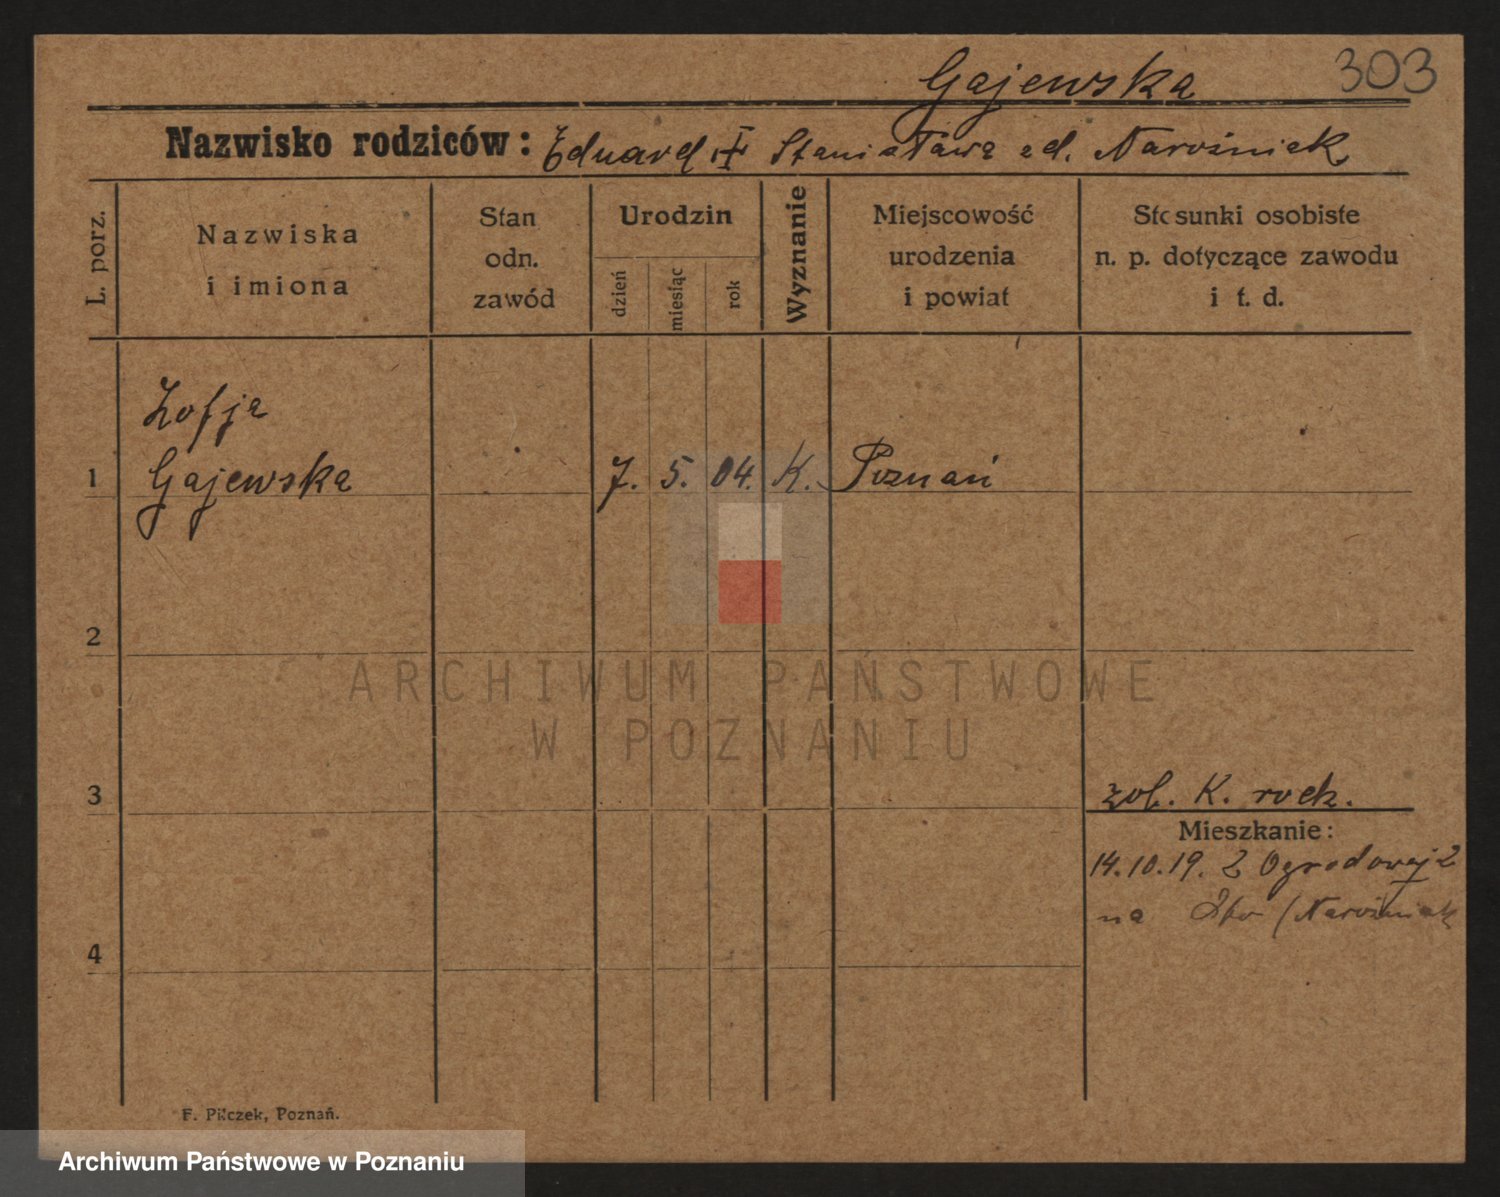 Gajewska 303
Nazwisko rodziców: Eduard Stanisława zd. Narożniak
L. porz.
Nazwiska
i imiona
Stan
odn.
zawód
Urodzin
dzień
miesiąc
rok
Wyznanie
Miejscowość
urodzenia
i powiat
Stosunki osobiste
n. p. dotyczące zawodu
i t. d.
Zofja
1 Gajewska 7. 5. 04. K. Poznań
2
ARCHIWUM PAŃSTWOWE
W POZNANIU
3 zob. K. rock.
Mieszkanie:
14.10.19. Z Ogrodowej 2
na (Narożniak
4
F. Pilczek, Poznań.
Archiwum Państwowe w Poznaniu